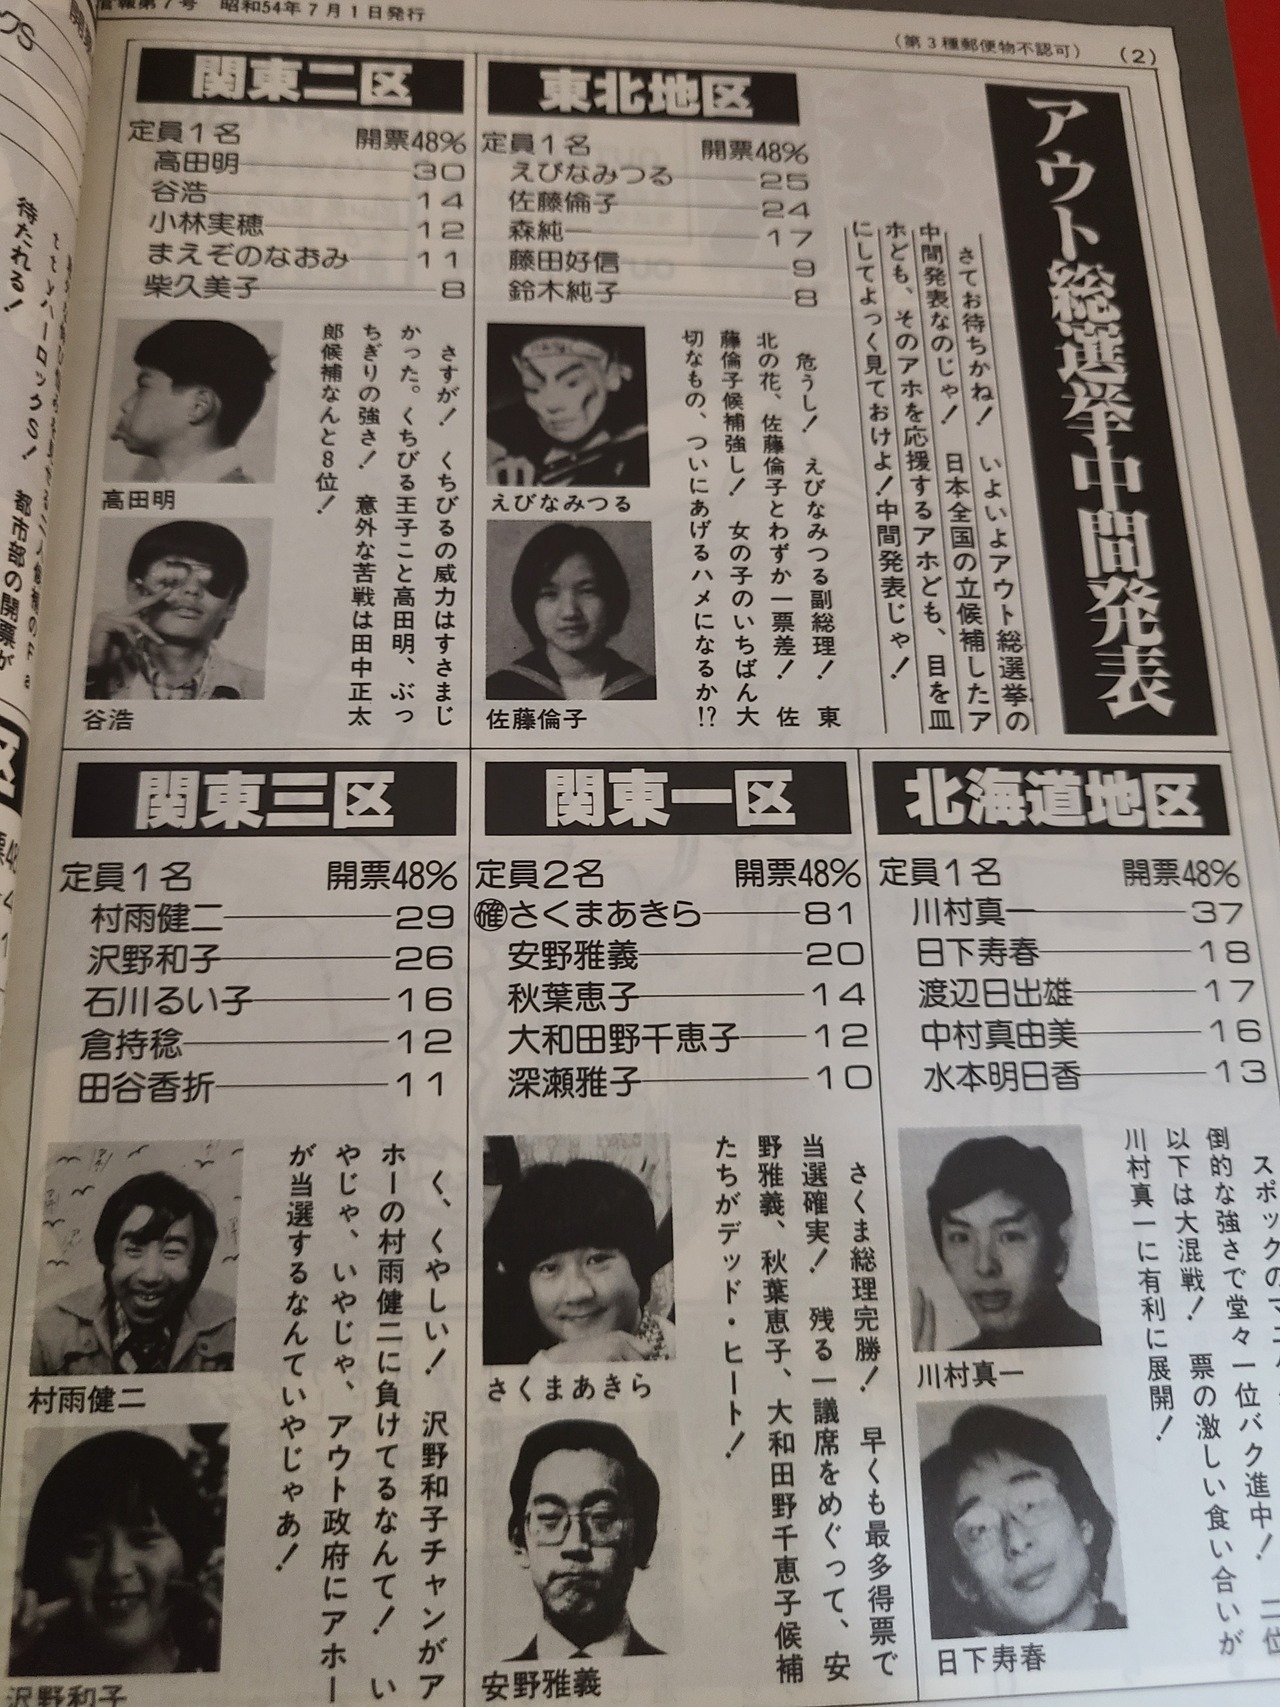 官報第7号 昭和54年7月1日発行
(第3種郵便物不認可)
(2)
アウト総選挙中間発表
さてお待ちかね! いよいよアウト総選挙の
中間発表なのじゃ! 日本全国の立候補したア
ホども、そのアホを応援するアホども、目を皿
にしてよっく見ておけよ!中間発表じゃ!
東北地区
定員1名 開票48%
えびなみつる 25
佐藤倫子 24
森純一 17
藤田好信 9
鈴木純子 8
危うし! えびなみつる副総理! 東
北の花、佐藤倫子とわずか一票差! 佐
藤倫子候補強し! 女の子のいちばん大
切なもの、ついにあげるハメになるか!?
えびなみつる
佐藤倫子
関東二区
定員1名 開票48%
高田明 30
谷浩 14
小林実穂 12
まえぞのなおみ 11
柴久美子 8
さすが! くちびるの威力はすさまじ
かった。くちびる王子こと高田明、ぶっ
ちぎりの強さ! 意外な苦戦は田中正太
郎候補なんと8位!
高田明
谷浩
北海道地区
定員1名 開票48%
川村真一 37
日下寿春 18
渡辺日出雄 17
中村真由美 16
水本明日香 13
スポックの
倒的な強さで堂々一位バク進中! 二位
以下は大混戦! 票の激しい食い合いが
川村真一に有利に展開!
川村真一
日下寿春
関東一区
定員2名 開票48%
㊢さくまあきら 81
安野雅義 20
秋葉恵子 14
大和田野千恵子 12
深瀬雅子 10
さくま総理完勝! 早くも最多得票で
当選確実! 残る一議席をめぐって、安
野雅義、秋葉恵子、大和田野千恵子候補
たちがデッド・ヒート!
さくまあきら
安野雅義
関東三区
定員1名 開票48%
村雨健二 29
沢野和子 26
石川るい子 16
倉持稔 12
田谷香折 11
く、くやしい! 沢野和子チャンがア
ホーの村雨健二に負けてるなんて! い
やじゃ、いやじゃ、アウト政府にアホー
が当選するなんていやじゃあ!
村雨健二
沢野和子
待たれる!
ハーロックS!
都市部の開票が
区